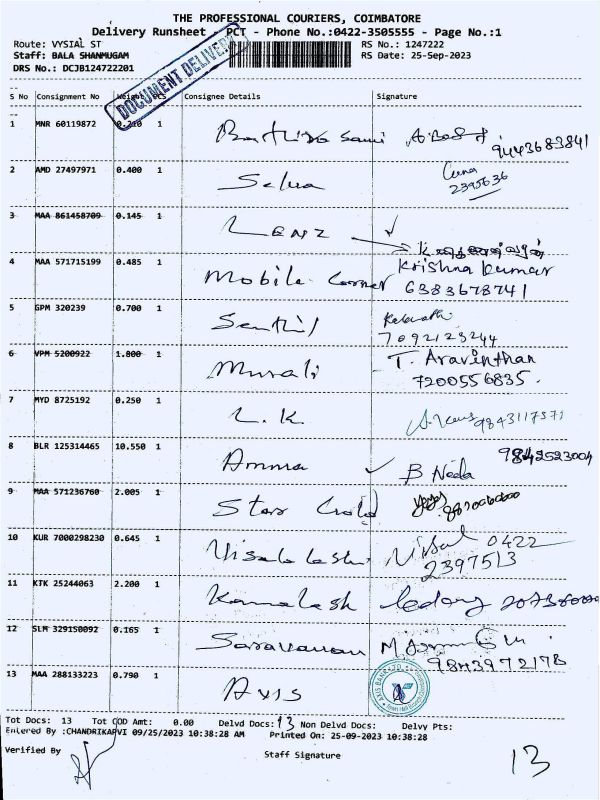 THE PROFESSIONAL COURIERS, COIMBATORE
Delivery Runsheet - PCT - Phone No.:0422-3505555 - Page No.:1
Route: VYSIAL ST RS No.: 1247222
Staff: BALA SHANMUGAM RS Date: 25-Sep-2023
DRS No.: DCJB124722201
DOCUMENT DELIVERY
S No Consignment No Weight PCS Consignee Details Signature
1 MNR 60119872 0.210 1 9443683841
2 AMD 27497971 0.400 1 Selva 2395636
3 MAA 861458709 0.145 1 LENZ
4 MAA 571715199 0.485 1 Mobile Corner Krishna Kumar
6383678741
5 GPM 320239 0.700 1 Senthil
7092123244
6 VPM 5200922 1.800 1 Murali T. Aravinthan
7200556835.
7 MYD 8725192 0.250 1 L.K. 9843117571
8 BLR 125314465 10.550 1 Amma B Neela 9842523004
9 MAA 571236760 2.005 1 Star Gold
10 KUR 7000298230 0.645 1 Visalakshi 0422
2397513
11 KTK 25244063 2.200 1 Kamalesh
12 SLM 329150092 0.165 1 Saravanan
9843972178
13 MAA 288133223 0.790 1 Axis
AXIS BANK LTD
Tot Docs: 13 Tot COD Amt: 0.00 Delvd Docs: 13 Non Delvd Docs: Delvy Pts:
Entered By :CHANDRIKAPVI 09/25/2023 10:38:28 AM Printed On: 25-09-2023 10:38:28
Verified By Staff Signature
13